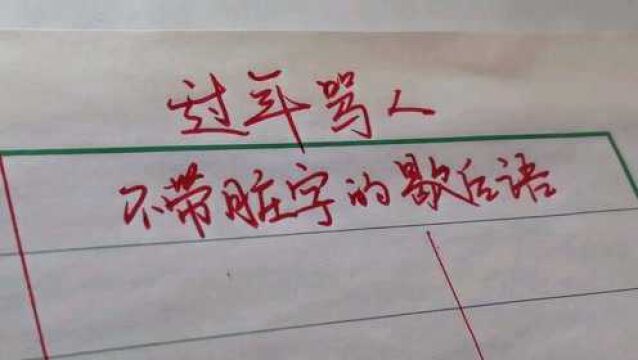 过年骂人
不带脏字的歇后语